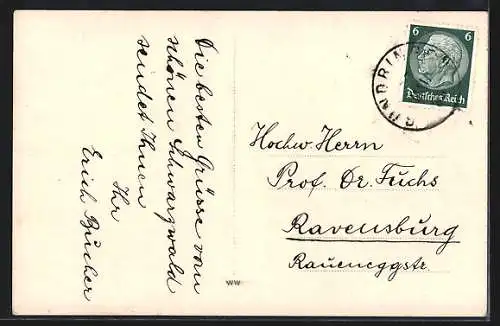 Die besten Grüsse vom
schönen Schwarzwald
sendet Ihnen
Ihr
Erich Bucher
6 6
Deutsches Reich
Hochw. Herrn
Prof. Dr. Fuchs
Ravensburg
Raueneggstr.
WW